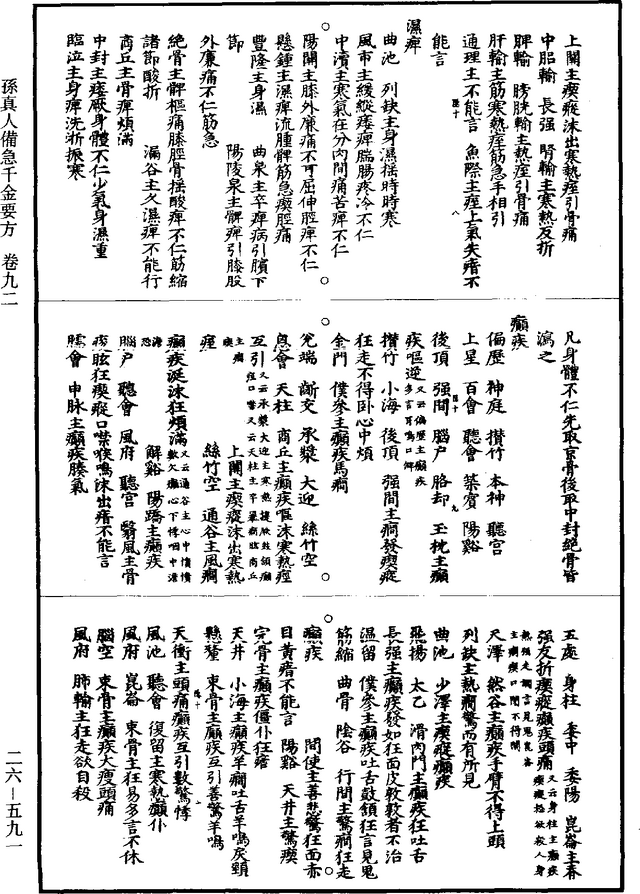 孫真人備急千金要方 卷九二
二六-五九一
上關主瘈瘲沫出寒熱痙引骨痛
中膂輸 長强 腎輸主寒熱痙反折
脾輸 膀胱輸主熱痙引骨痛
肝輸主筋寒熱痙筋急手相引
通理主不能言 魚際主痙上氣失瘖不
能言
濕痺
曲池 列缺主身濕搖時時寒
風市主緩縱痿痺腨腸疼冷不仁
中瀆主寒氣在分肉間痛苦痺不仁
陽關主膝外廉痛不可屈伸脛痺不仁
懸鍾主濕痺流腫髀筋急瘈脛痛
豐隆主身濕 曲泉主卒痺病引臏下
節 陽陵泉主髀痺引膝股
外廉痛不仁筋急
絶骨主髀樞痛膝脛骨搖酸痺不仁筋縮
諸節酸折 漏谷主久濕痺不能行
商丘主骨痺煩滿
中封主痿厥身體不仁少氣身濕重
臨泣主身痺洗淅振寒
凡身體不仁先取京骨後取中封絶骨皆
瀉之
癲疾
偏歷 神庭 攢竹 本神 聽宮
上星 百會 聽會 築賓 陽谿
後頂 强間 腦户 胳却 玉枕主癲
疾嘔逆又云偏歷主癲疾多言耳鳴口僻
攢竹 小海 後頂 强間主癇發瘈瘲
狂走不得卧心中煩
金門 僕參主癲疾馬癇
兊端 齗交 承漿 大迎 絲竹空
囟會 天柱 商丘主癲疾嘔沫寒熱痙
互引
上關主瘈瘲沫出寒熱
痙 絲竹空 通谷主風癇
癲疾涎沫狂煩滿
解谿 陽蹻主癲疾
腦户 聽會 風府 聽宮 翳風主骨
痠眩狂瘈瘲口噤喉鳴沫出瘖不能言
臑會 申脉主癲疾腠氣
五處 身柱 委中 委陽 崑崙主脊
强反折瘈瘲癲疾頭痛
尺澤 然谷主癲疾手臂不得上頭
列缺主熱癇驚而有所見
曲池 少澤主瘈瘲癲疾
飛揚 太乙 滑肉門主癲疾狂吐舌
長强主癲疾發如狂面皮敦敦者不治
温留 僕參主癲疾吐舌鼓頷狂言見鬼
筋縮 曲骨 陰谷 行間主驚癇狂走
癲疾 間使主善悲驚狂面赤
目黄瘖不能言 陽谿 天井主驚瘈
完骨主癲疾僵仆狂瘧
天井 小海主癲疾羊癇吐舌羊鳴戾頸
懸釐 束骨主癲疾互引善驚羊鳴
天衝主頭痛癲疾互引數驚悸
風池 聽會 復留主寒熱癲仆
風府 崑崙 束骨主狂易多言不休
腦空 束骨主癲疾大瘦頭痛
風府 肺輸主狂走欲自殺